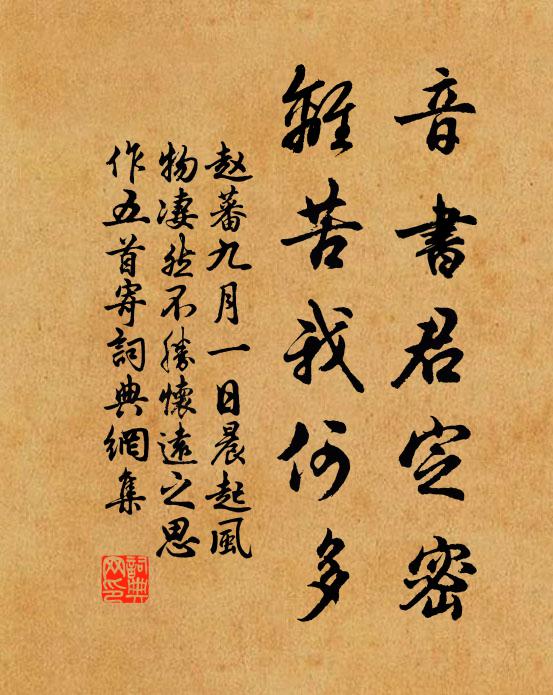 音書君定密
離苦我何多
赵蕃九月一日晨起風
物凄然不勝懷遠之思
作五首寄詞典網集
詞典
网印